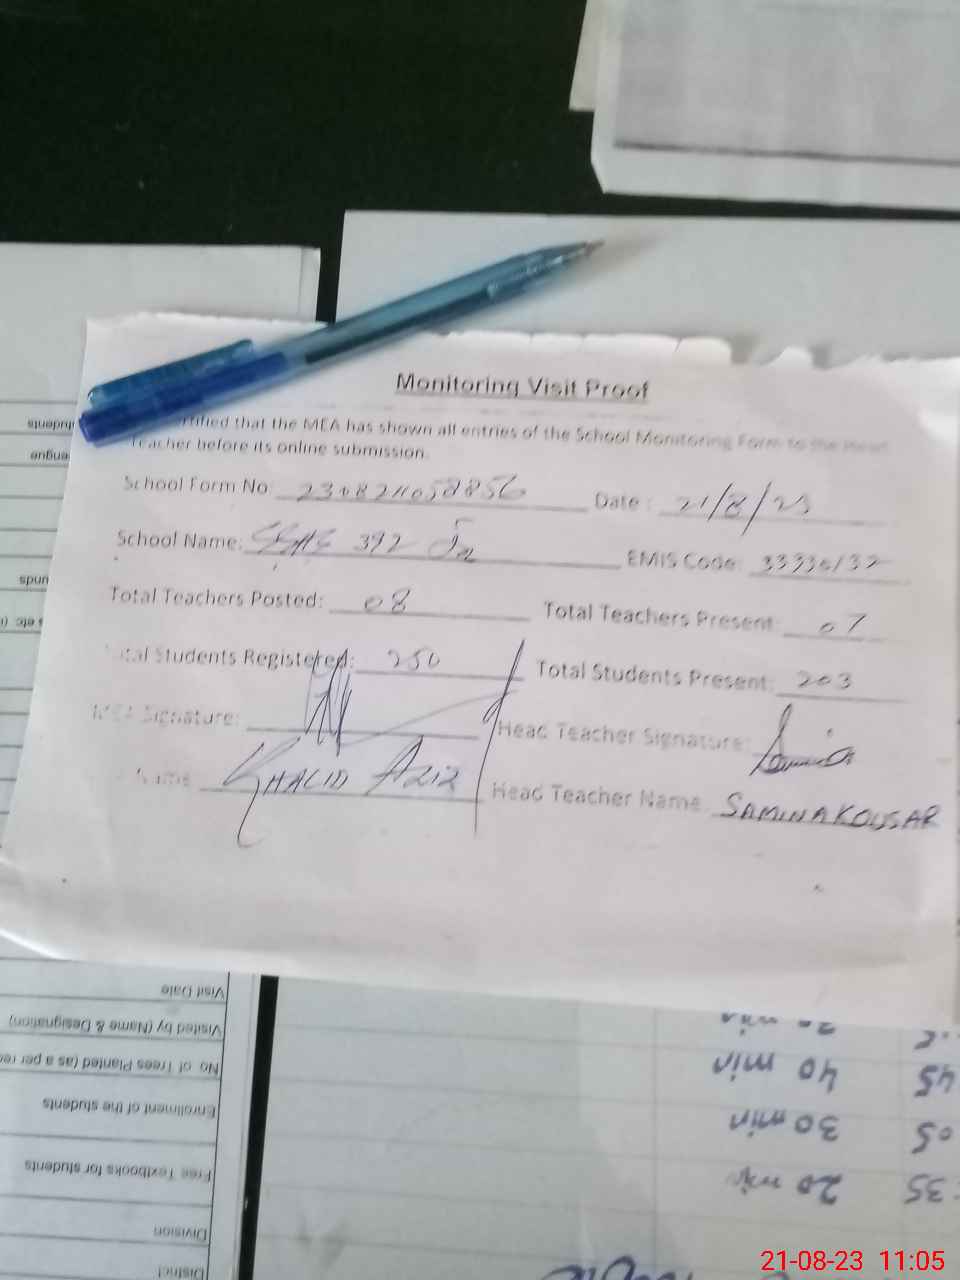 Monitoring Visit Proof
that the MEA has shown all entries of the School Monitoring Form to the Head
Teacher before its online submission.
School Form No: 230821105 8856 Date : 21/8/23
School Name: 392 EMIS Code: 33330132
Total Teachers Posted: 08 Total Teachers Present: 07
Total Students Registered: 250 Total Students Present: 203
MEA Signature: Head Teacher Signature: Samina
Name KHALID AZIZ Head Teacher Name SAMINA KOUSAR
students
spun
Visit Date
Visited by (Name & Designation)
No of Trees Planted (as a per
Enrollment of the students
Free Textbooks for students
Division
District
20 min
45 40 min
05 30 min
35 20 min
21-08-23 11:05